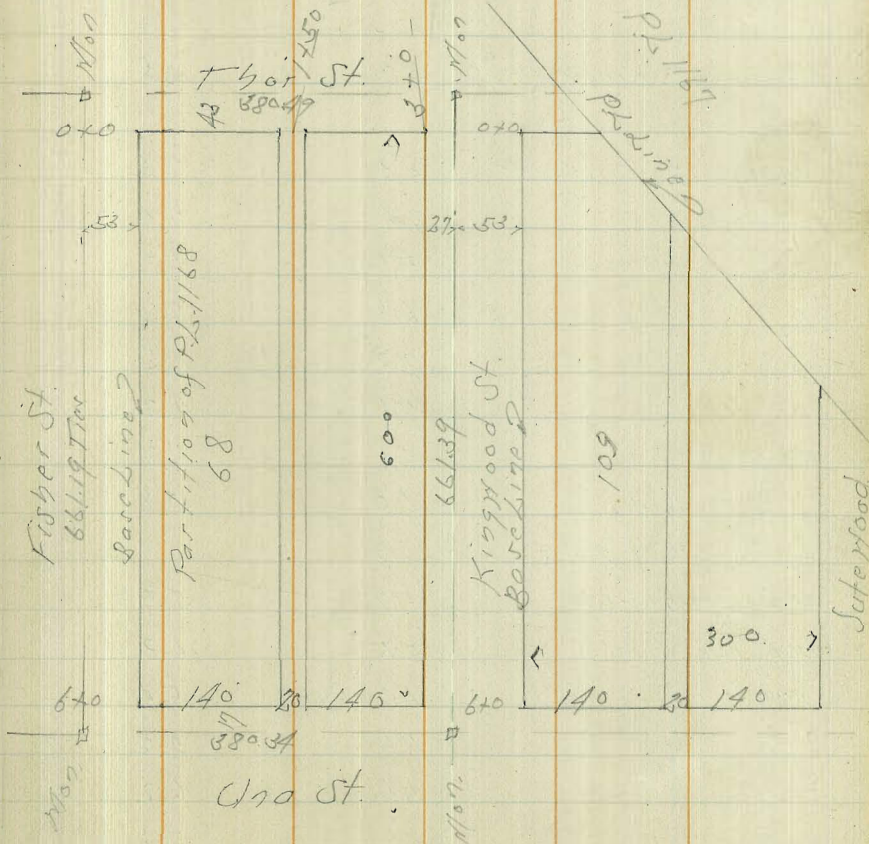 Mon
Thor St.
1+50
3+0
Mon
43
380.49
0+0
0+0
53
27
53
Fisher St.
661.19 Ties
Base Line 2
Partition of P.L. 1168
68
600
661.39
Kingwood St.
Base Line 2
109
300.
Suterwood
6+0
140
20
140
6+0
140
20
140
17
380.34
Mon.
Una St.
Mon.